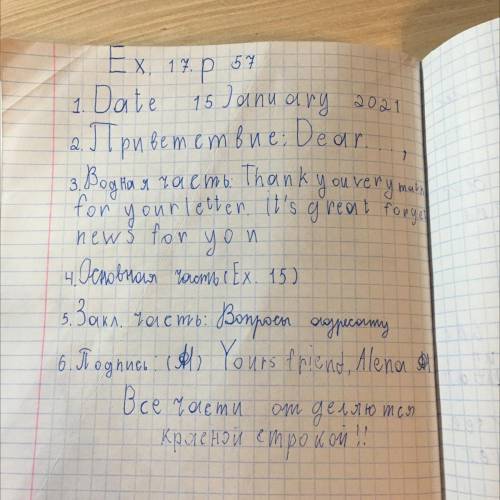 Ex. 17. p 57
1. Date 15 January 2021
2. Приветствие: Dear...,
3. Водная часть: Thank you very much
for your letter. It's great forget
news for yon
4. Основная часть (Ex. 15)
5. Закл. часть: Вопросы адресату
6. Подпись: (Я) Yours friend, Alena
Все части от деляются
красной строкой!!